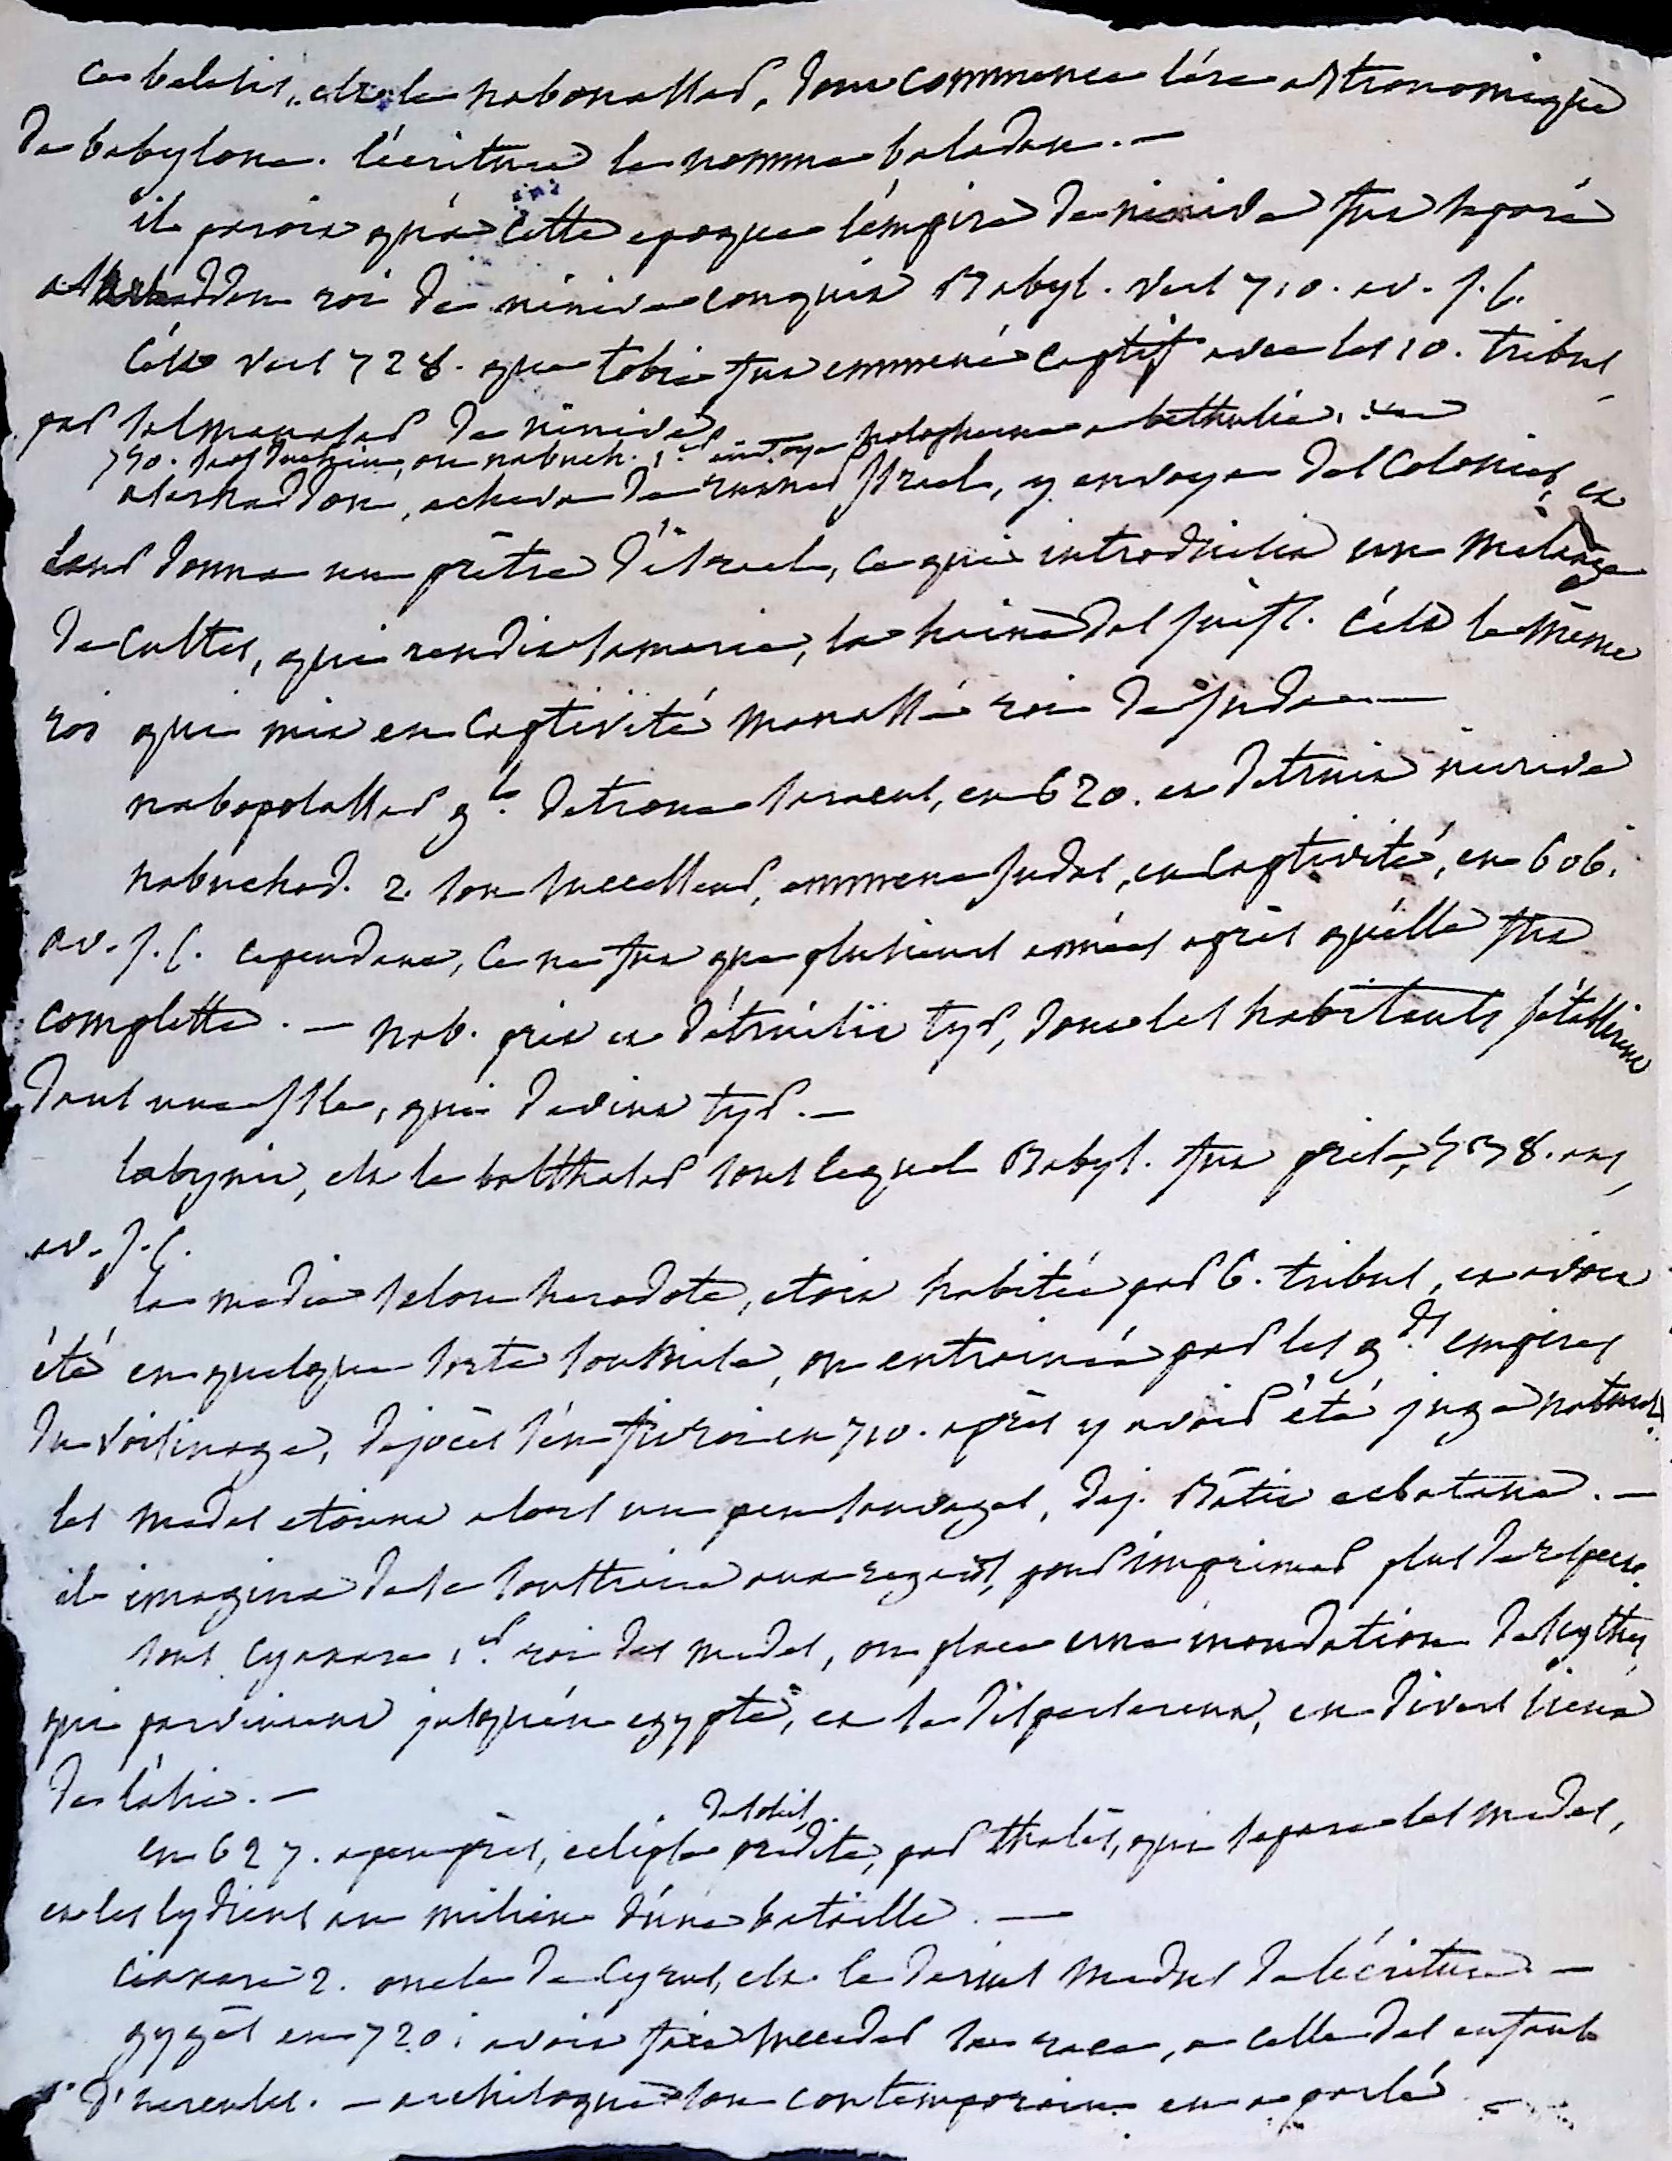 ce belesis, est le nabonassar, dont commence l'ére astronomique
de babylone. l'écriture le nomme baladan. —
il paroit qu'à cette epoque l'empire de ninive fut separé
assaraddon roi de ninive conquit Babyl. vers 710. av. J. C.
C'est vers 728. que tobie fut emmené captif avec les 10. tribus
par salmanasar de ninive
saosduchin, ou nabuch. 1.er envoye holopherne a bethulie.
assaraddon, acheva de ruiner Israel, y envoya des colonies, et
leur donna un prêtre d'israel, ce qui introduisit un melange
de cultes, qui rendit samarie, la haine des juifs. C'est le même
roi qui mit en captivité manassé roi de juda —
nabopolassar g.al detrone saracus, en 620. et detruit ninive
nabuchod. 2. son successeur, emmene judas, en captivité, en 606.
av. J. C. cependant, ce ne fut que plusieurs années après qu'elle fut
complette. — nab. prit et détruisit tyr, dont les habitants s'établirent
dans une isle, qui devint tyr. —
labynit, est le balthasar sous lequel Babyl. fut prise, 538. ans,
av. J. C.
la medie selon herodote, etoit habitée par 6. tribus, et avoit
été en quelque sorte soumise, ou entrainée par les g.ds empires
du voisinage, dejocès s'en fit roi en 710. après y avoir été juge naturel.
les medes etoient alors un peu sauvages, dej. Bâtit ecbatane. —
il imagina de se soustraire aux regards, pour imprimer plus de respect.
sous cyaxare 1.er roi des medes, on place une inondation de scythes,
qui parvinrent jusqu'en egypte, et se disperserent, en divers lieux
de l'asie. —
en 627. a peu près, eclipse de soleil, predite, par thalès, qui separe les medes,
et les lydiens au milieu d'une bataille. —
ciaxare 2. oncle de Cyrus, est le darius medus de l'écriture —
gygès en 720. avoit fait succeder sa race, a celle des enfants
d'hercules. — archiloque son contemporain en a parlé